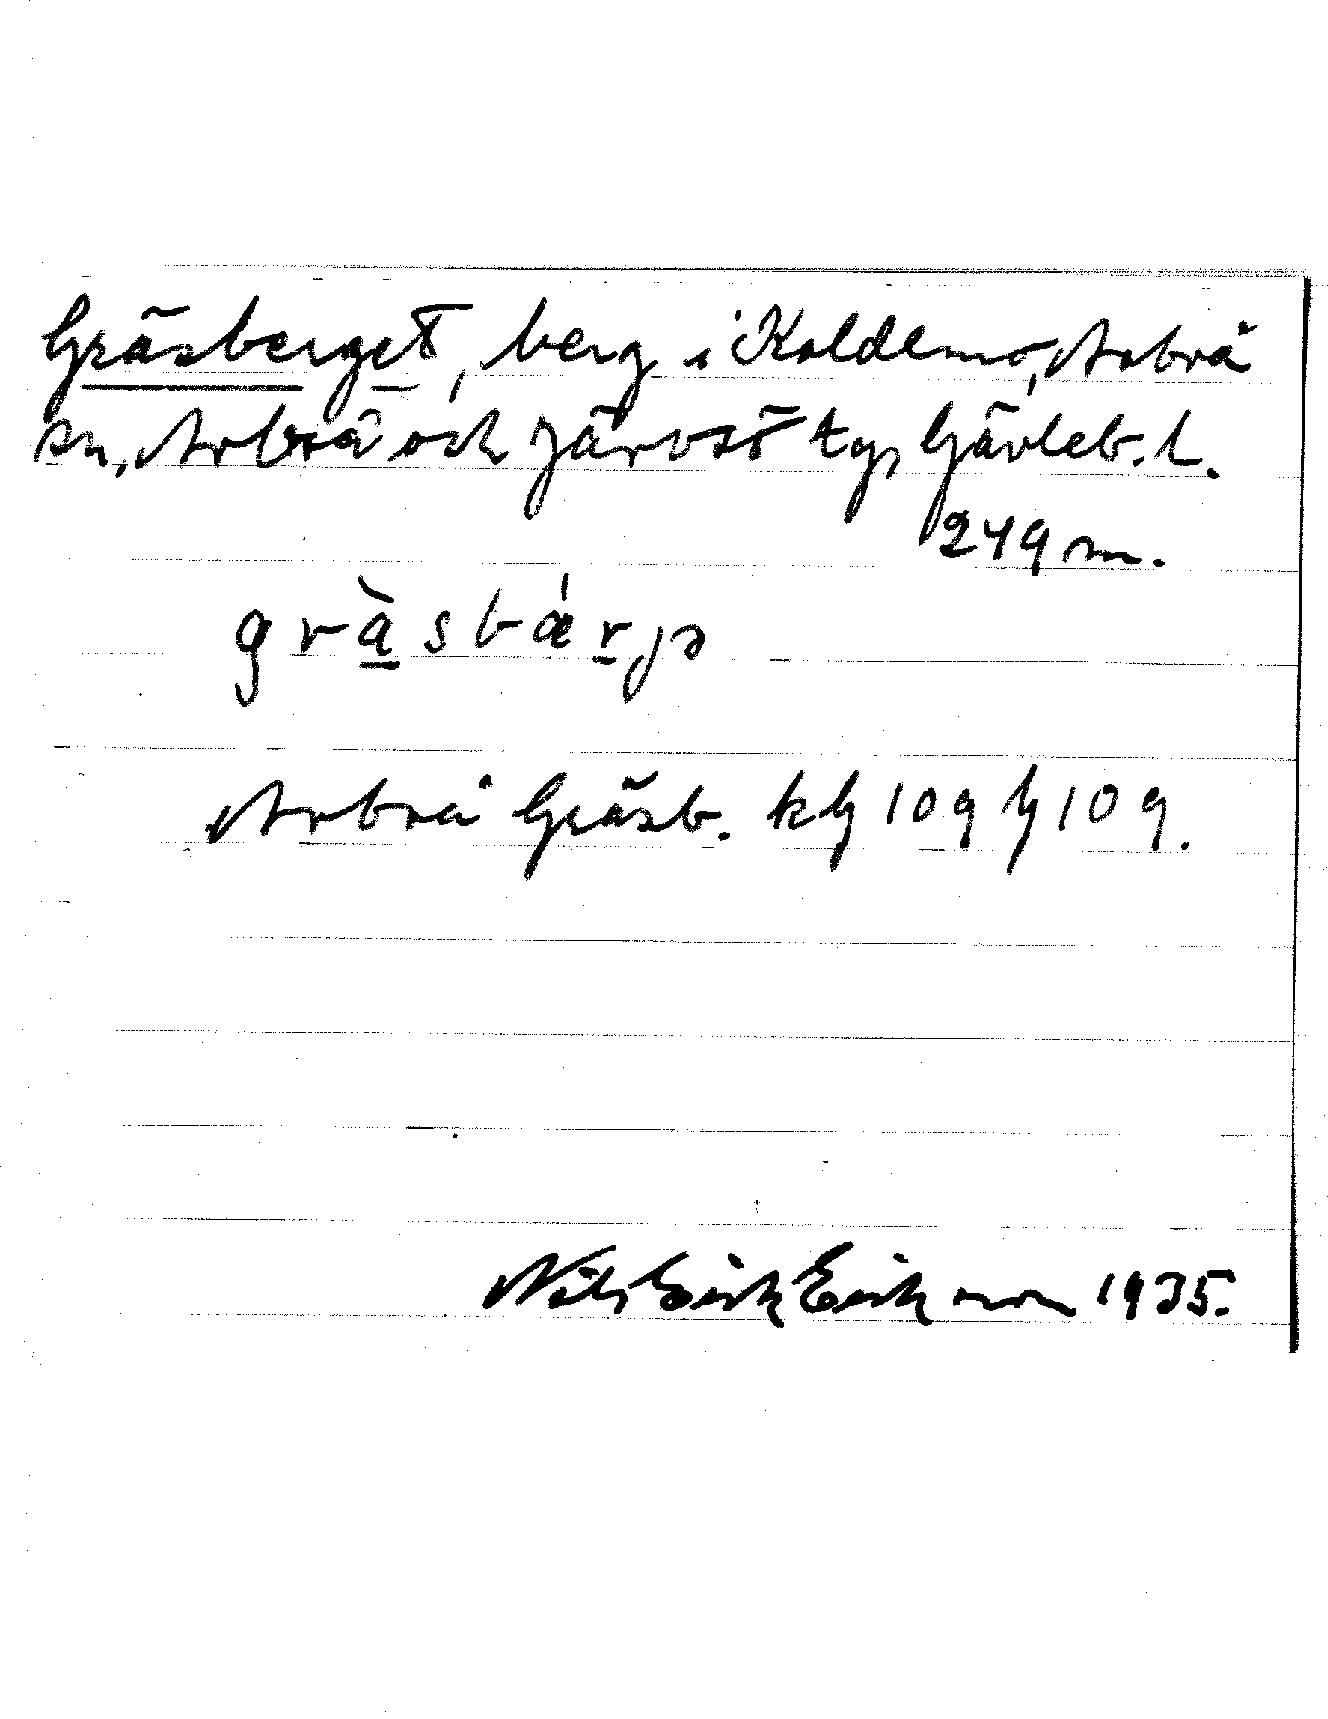 Gräsberget, berg i Koldemo, Arbrå
sn, Arbrå och Järvsö tg, Gävleb. l.
249 m.
gràsbǽrjə
Arbrå Gräsb. kG 109 G 109.
Nils Erik Erikson 1935.